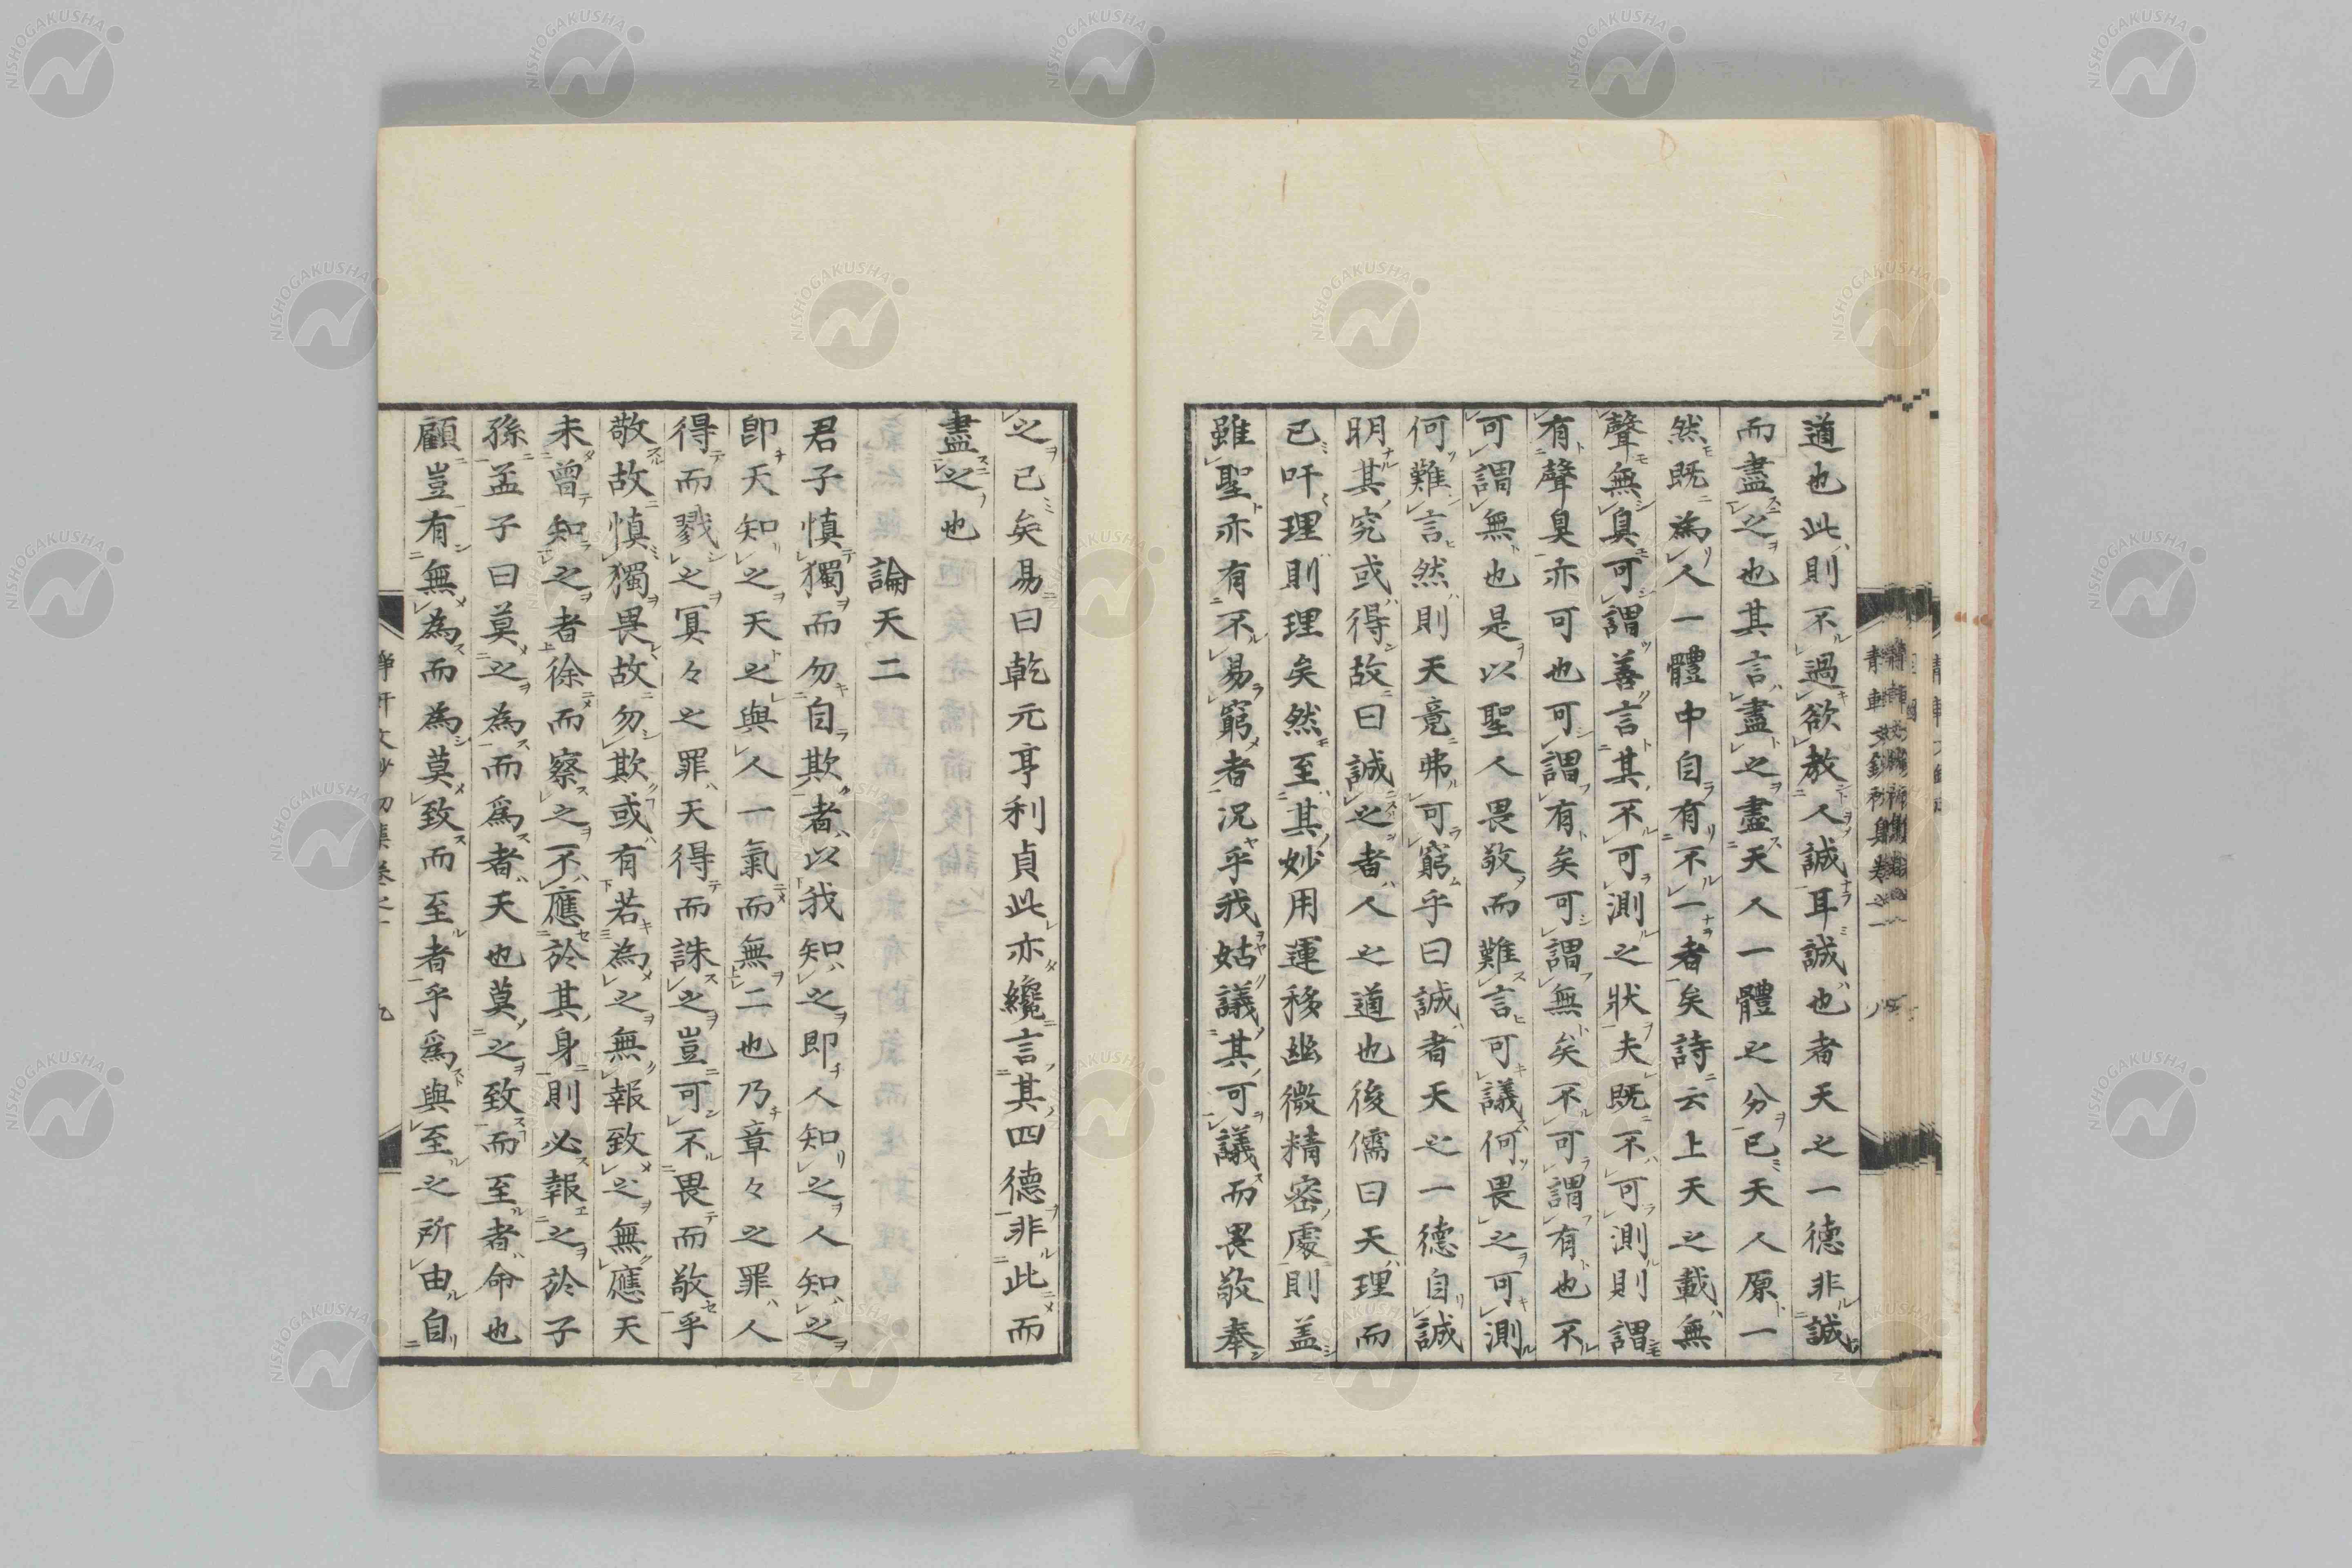 道也此則不過欲教人誠耳誠也者天之一德非誠
而盡之也其言盡之盡天人一體之分已天人原一
然既為人一體中自有不一者矣詩云上天之載無
聲無臭可謂善言其不可測之狀夫既不可測則謂
有聲臭亦可也可謂有矣可謂無矣不可謂有也不
可謂無也是以聖人畏敬而難言可議何畏之可測
何難言然則天竟弗可窮乎曰誠者天之一德自誠
明其究或得故曰誠之者人之道也後儒曰天理而
已吁理則理矣然至其妙用運移幽微精密處則盖
雖聖亦有不易窮者況乎我姑議其可議而畏敬奉
之已矣易曰乾元亨利貞此亦纔言其四德非此而
盡之也
論天二
君子慎獨而勿自欺者以我知之即人知之人知之
即天知之天之與人一氣而無二也乃章々之罪人
得而戮之冥々之罪天得而誅之豈可不畏而敬乎
敬故慎獨畏故勿欺或有若為之無報致之無應天
未曾知之者徐而察之不應於其身則必報之於子
孫孟子曰莫之為而爲者天也莫之致而至者命也
顧豈有無為而為莫致而至者乎爲與至之所由自
NISHOGAKUSHA